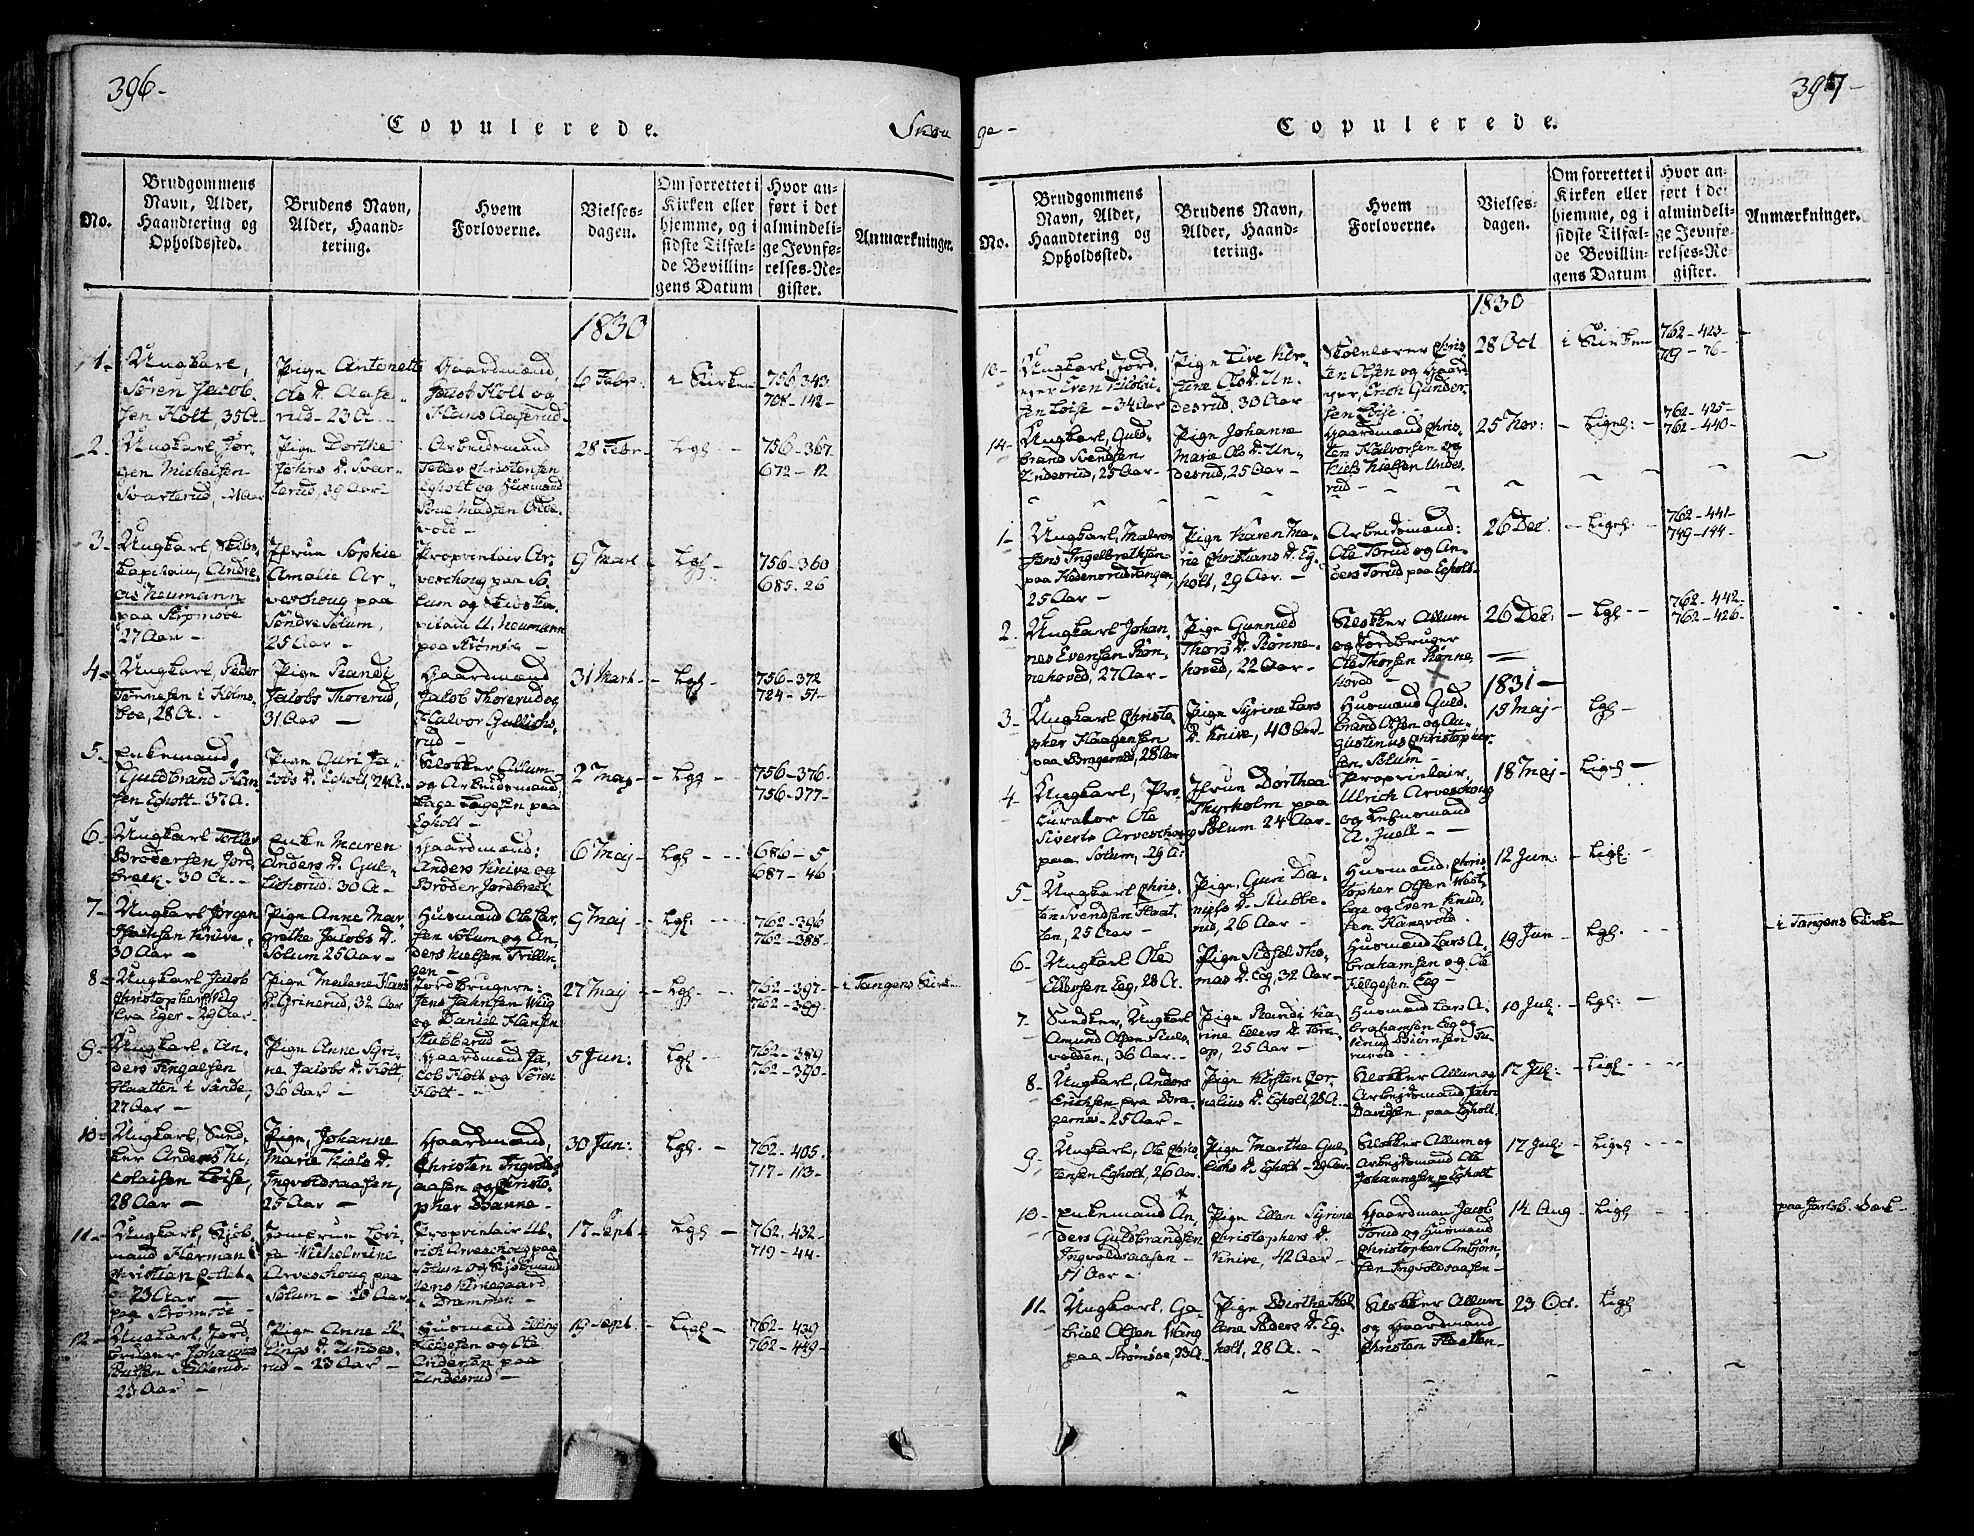 396-
Copulerede.
Skou
No.
Brudgommens Navn, Alder, Haandtering og Opholdssted.
Brudens Navn, Alder, Haandtering.
Hvem Forloverne.
Vielsesdagen.
Om forrettet i Kirken eller hjemme, og i sidste Tilfælde Bevillingens Datum
Hvor anført i det almindelige Jevnførelses-Register.
Anmærkninger.
1830
1-
Ungkarl,
Søren Jacob-
sen Holt, 35 A.
Pige Antonette
Ols D. Aase-
rud - 23 A.
Gaardmænd,
Jacob Holt og
Hans Aaserud
6 Febr.
i Kirken
756-343
708-142-
2-
Ungkarl Jør-
gen Michelsen
Svarterud,
Pige Dorthe
Johns D. Svar-
terud, 39 Aar-
Arbeidsmand
Tollev Christensen
Egholt og Husmand
28 Febr-
Lgl
756-367
672-12
3-
Ungkarl, Skibs-
kapitain, Andre-
as Neumann
paa Strømsøe
27 Aar-
Jfrue Sophie
Amalie Ar-
veschoug paa
Søndre Solum,
25 Aar-
Proprietair Ar-
veschoug paa So-
lum og Skibska-
pitain U. Neumann
paa Strømsøe-
9 Mart
Lgl
756-360
685-26
4-
Ungkarl Peder
Tønnesen i Holms-
boe, 28 A.
Pige Randi
Jacobs Thorerud,
31 Aar-
Gaardmænd
Jacob Thorerud og
Halvor Gullichs-
rud-
31 Mart-
Lgl-
756-372
724-51-
5-
Enkemand,
Guldbrand Han-
sen Egholt-37 A.
Pige Guri Ja-
cobs D. Egholt, 24 A.
Klokker Allum
og Arbeidsmand
Egholt-
2 Maj
Lgl-
756-376-
756-377-
6-
Ungkarl Tollev
Brodersen Jord-
bræk. 30 A.-
Enke Maren
Anders D. Gul-
lichsrud. 30 A-
Gaardmænd:
Anders Knive og
Broder Jordbræk
6 Maj-
Lgl
686-5
687-46
7-
Ungkarl Jørgen
Knive,
30 Aar-
Pige Anne Mar-
grethe Jacobs D.
Solum 25 Aar-
Husmænd Ole Lar-
sen Solum og An-
ders Nielsen Trillin-
gen-
9 Maj
Lgl.
762-396
762-388-
8-
Ungkarl Jacob
fra Eger-29 Aar-
Pige Malene Hans
D. Grinerud, 32 Aar
Jordbrugere:
og Daniel Hansen
Stubberud-
27 Maj
Lgl.
762-397-
762-399-
i Tangens Kirke
9-
Ungkarl. An-
ders Tingalsen
Flaatten i Sande,
27 Aar-
Pige Anne Syri-
ne Jacobs D. Holt,
36 Aar-
Gaardmænd Ja-
cob Holt og Søren
Holt-
5 Jun:
Lgl.
762-389
762-390-
10-
Ungkarl, Sned-
ker Anders Ni-
colaisen Løise,
28 Aar-
Pige, Johanne
Marie Niels D.
Ingvoldsaasen,
25 Aar-
Gaardmænd,
Christen Ingvolds-
aasen og Christo-
pher Danne-
30 Jun:
Lgl.
762-405.
717-113-
11-
Ungkarl, Kjøb-
mand Herman
Christian
23 Aar-
paa Strømsøe-
Jomfrue Lovi-
se Wilhelmine
Arveschoug paa
Solum-
Proprietair Ul-
rich Arveschoug paa
Solum og Kjøbmand
Jens Kirkegaard
i Drammen-
17 Sept
Lgl-
762-432-
719-44-
12-
Ungkarl, Jord-
bruger Johannes
25 Aar-
Pige Anne El-
lings D. Undes-
rud-23 Aar-
Husmænd Elling
Helgesen og Ole
Andersen paa
Undesrud-
19 Sept.
Ligl-
762-439
762-449-
397-
ge-
Copulerede.
No.
Brudgommens Navn, Alder, Haandtering og Opholdssted.
Brudens Navn, Alder, Haandtering.
Hvem Forloverne.
Vielsesdagen.
Om forrettet i Kirken eller hjemme, og i sidste Tilfælde Bevillingens Datum
Hvor anført i det almindelige Jevnførelses-Register.
Anmærkninger.
1830
13-
Ungkarl, Jord-
Even Nicolai-
sen Løise-34 Aar
Pige Live Kir-
stine Ols D. Un-
desrud, 30 Aar
Skolelærer Chris-
ten Olsen og Gaard-
Erich Gunder-
sen Løise.-
28 Oct
i Kirken
762-423-
719-76-
14-
Ungkarl, Guld-
brand Svendsen
Undesrud, 25 Aar-
Pige Johanne
Marie Ols D. Un-
desrud, 25 Aar-
Gaardmænd Chris-
ten Halvorsen og
Niels Nielsen Undes-
rud-
25 Nov:
Ligel:
762-425-
762-440-
1-
Ungkarl,
Jens Ingelbrethsen
25 Aar-
Pige Karen Ma-
rie Christians D. Eg-
holt, 29 Aar.-
Arbeidsmænd:
Ole Torud og An-
ders Torud paa Egholt-
26 Dec.
Ligel.
762-441-
749-144-
2-
Ungkarl Johan-
nes Evensen Røn-
nehoved, 27 Aar-
Pige Gunnild
Thors D. Rønne-
hoved, 22 Aar-
Klokker Allum
og Jordbruger
Ole Thorsen Rønne-
hoved-
26 Dec:
Lgl
762-442-
762-426-
1831-
3-
Ungkarl Christo-
pher Haagensen
paa Bragernæs, 28 Aar
Pige Syrine Lars
D. Knive, 40 Aar-
Husmænd Guld-
brand Olsen og Au-
gustenus Christopher-
sen, Solum-
15 Maj-
Lgl-
4-
Ungkarl, Pro-
curator Ole
Siverts Arveschoug
paa Solum, 29 A:
Jfrue Dorthea
Thyrholm paa
Solum 24 Aar-
Proprietair,
Ulrich Arveschoug
og Lensmand
N. Juell-
18 Maj-
Ligl-
5-
Ungkarl Chris-
ten Svendsen Flaat-
ten, 25 Aar-
Pige, Guri Da-
niels D. Stubbe-
rud, 26 Aar-
Husmænd, Chris-
topher Olsen
og Even Knud-
sen
12 Jun:
Ligl.
6-
Ungkarl Ole
Ellersen Eeg, 28 A.
Pige Sidsel Tho-
mas D. Eeg, 32 Aar-
Husmænd Lars A-
brahamsen og Ole
Helgesen Eeg-
19 Jun
Lgl.
i Tangens Kirke
7-
Snedker, Ungkarl
Amund Olsen
36 Aar.-
Pige Randi Ka-
rine Ellers D.
25 Aar-
Husmænd Lars A-
brahamsen Eeg og
Knud Biørnsen
10 Jul:
Lgl:
8-
Ungkarl, Anders
Erichsen paa Bra-
gernæs-25 Aar-
Pige Kirsten Cor-
nelius D. Egholt, 28 A.
Klokker Allum og
Arbejdsmand John
Davidsen paa Egholt.
17 Jul:
Ligl.
9-
Ungkarl, Ole Chris-
tensen Egholt, 26 Aar.
Pige Marthe Gul-
lichs D. Egholt-29 Aar
Klokker Allum og
Arbejdsmand Ole
Johannesen p. Egholt
17 Jul:
Ligel
10-
Enkemand An-
ders Guldbrandsen
Ingvoldsaasen-
51 Aar-
Pige Ellen Syrine
Christophers D.
Knive, 42 Aar-
Gaardman Jacob
Torud og Husmand
Christopher Ambjørn-
sen Ingvoldsaasen-
14 Aug
Ligl
11-
Ungkarl, Ga-
briel Olsen
paa Strømsøe, 23 A.-
Pige Birthe Hel-
ene Peders D. Eg-
holt, 28 A.-
Klokker Allum
og Gaardmand
Christen Flaatten-
23 Oct.
Ligl